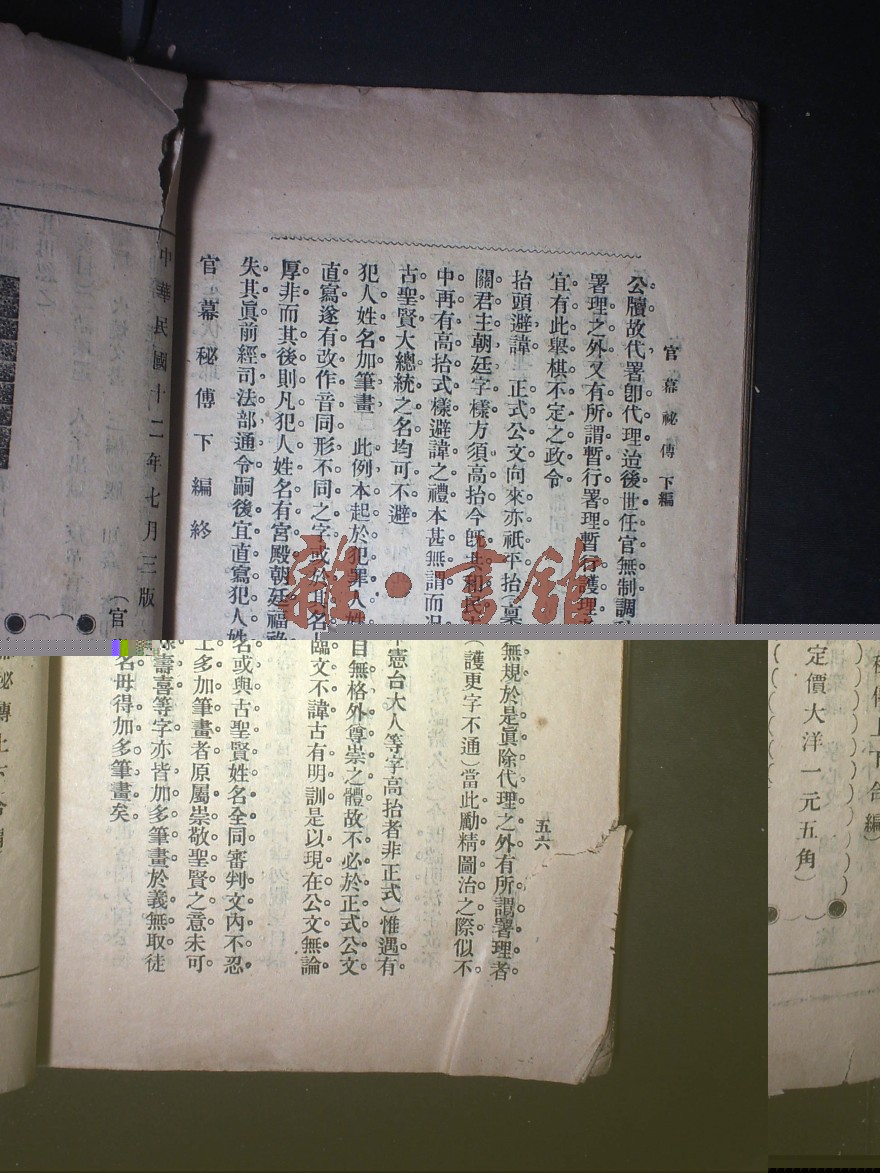 官幕祕傳 下編
公牘故代署卽代理迨後世任官無制調
署理之外又有所謂暫行署理暫行護理
宜有此舉棋不定之政令。
抬頭避諱 正式公文向來亦祇平抬(稟
關君主朝廷字樣方須高抬今旣共和民
中再有高抬式樣避諱之禮本甚無謂而况
古聖賢大總統之名均可不避。
犯人姓名加筆畫 此例本起於犯罪人姓
直寫遂有改作音同形不同之字或於其名
厚非而其後則凡犯人姓名有宮殿朝廷福祿
失其眞前經司法部通令嗣後宜直寫犯人姓
官幕秘傳下編終
中華民國十二年七月三版
(官
雜·書館
五六
無規於是眞除代理之外有所謂署理者
(護更字不通)當此勵精圖治之際似不
憲台大人等字高抬者非正式)惟遇有
自無格外尊崇之體故不必於正式公文
臨文不諱古有明訓是以現在公文無論
名或與古聖賢姓名全同審判文內不忍
上多加筆畫者原屬崇敬聖賢之意未可
壽喜等字亦皆加多筆畫於義無取徒
名毋得加多筆畫矣。
秘傳上下合編
秘傳上下合編)
定價大洋一元五角)